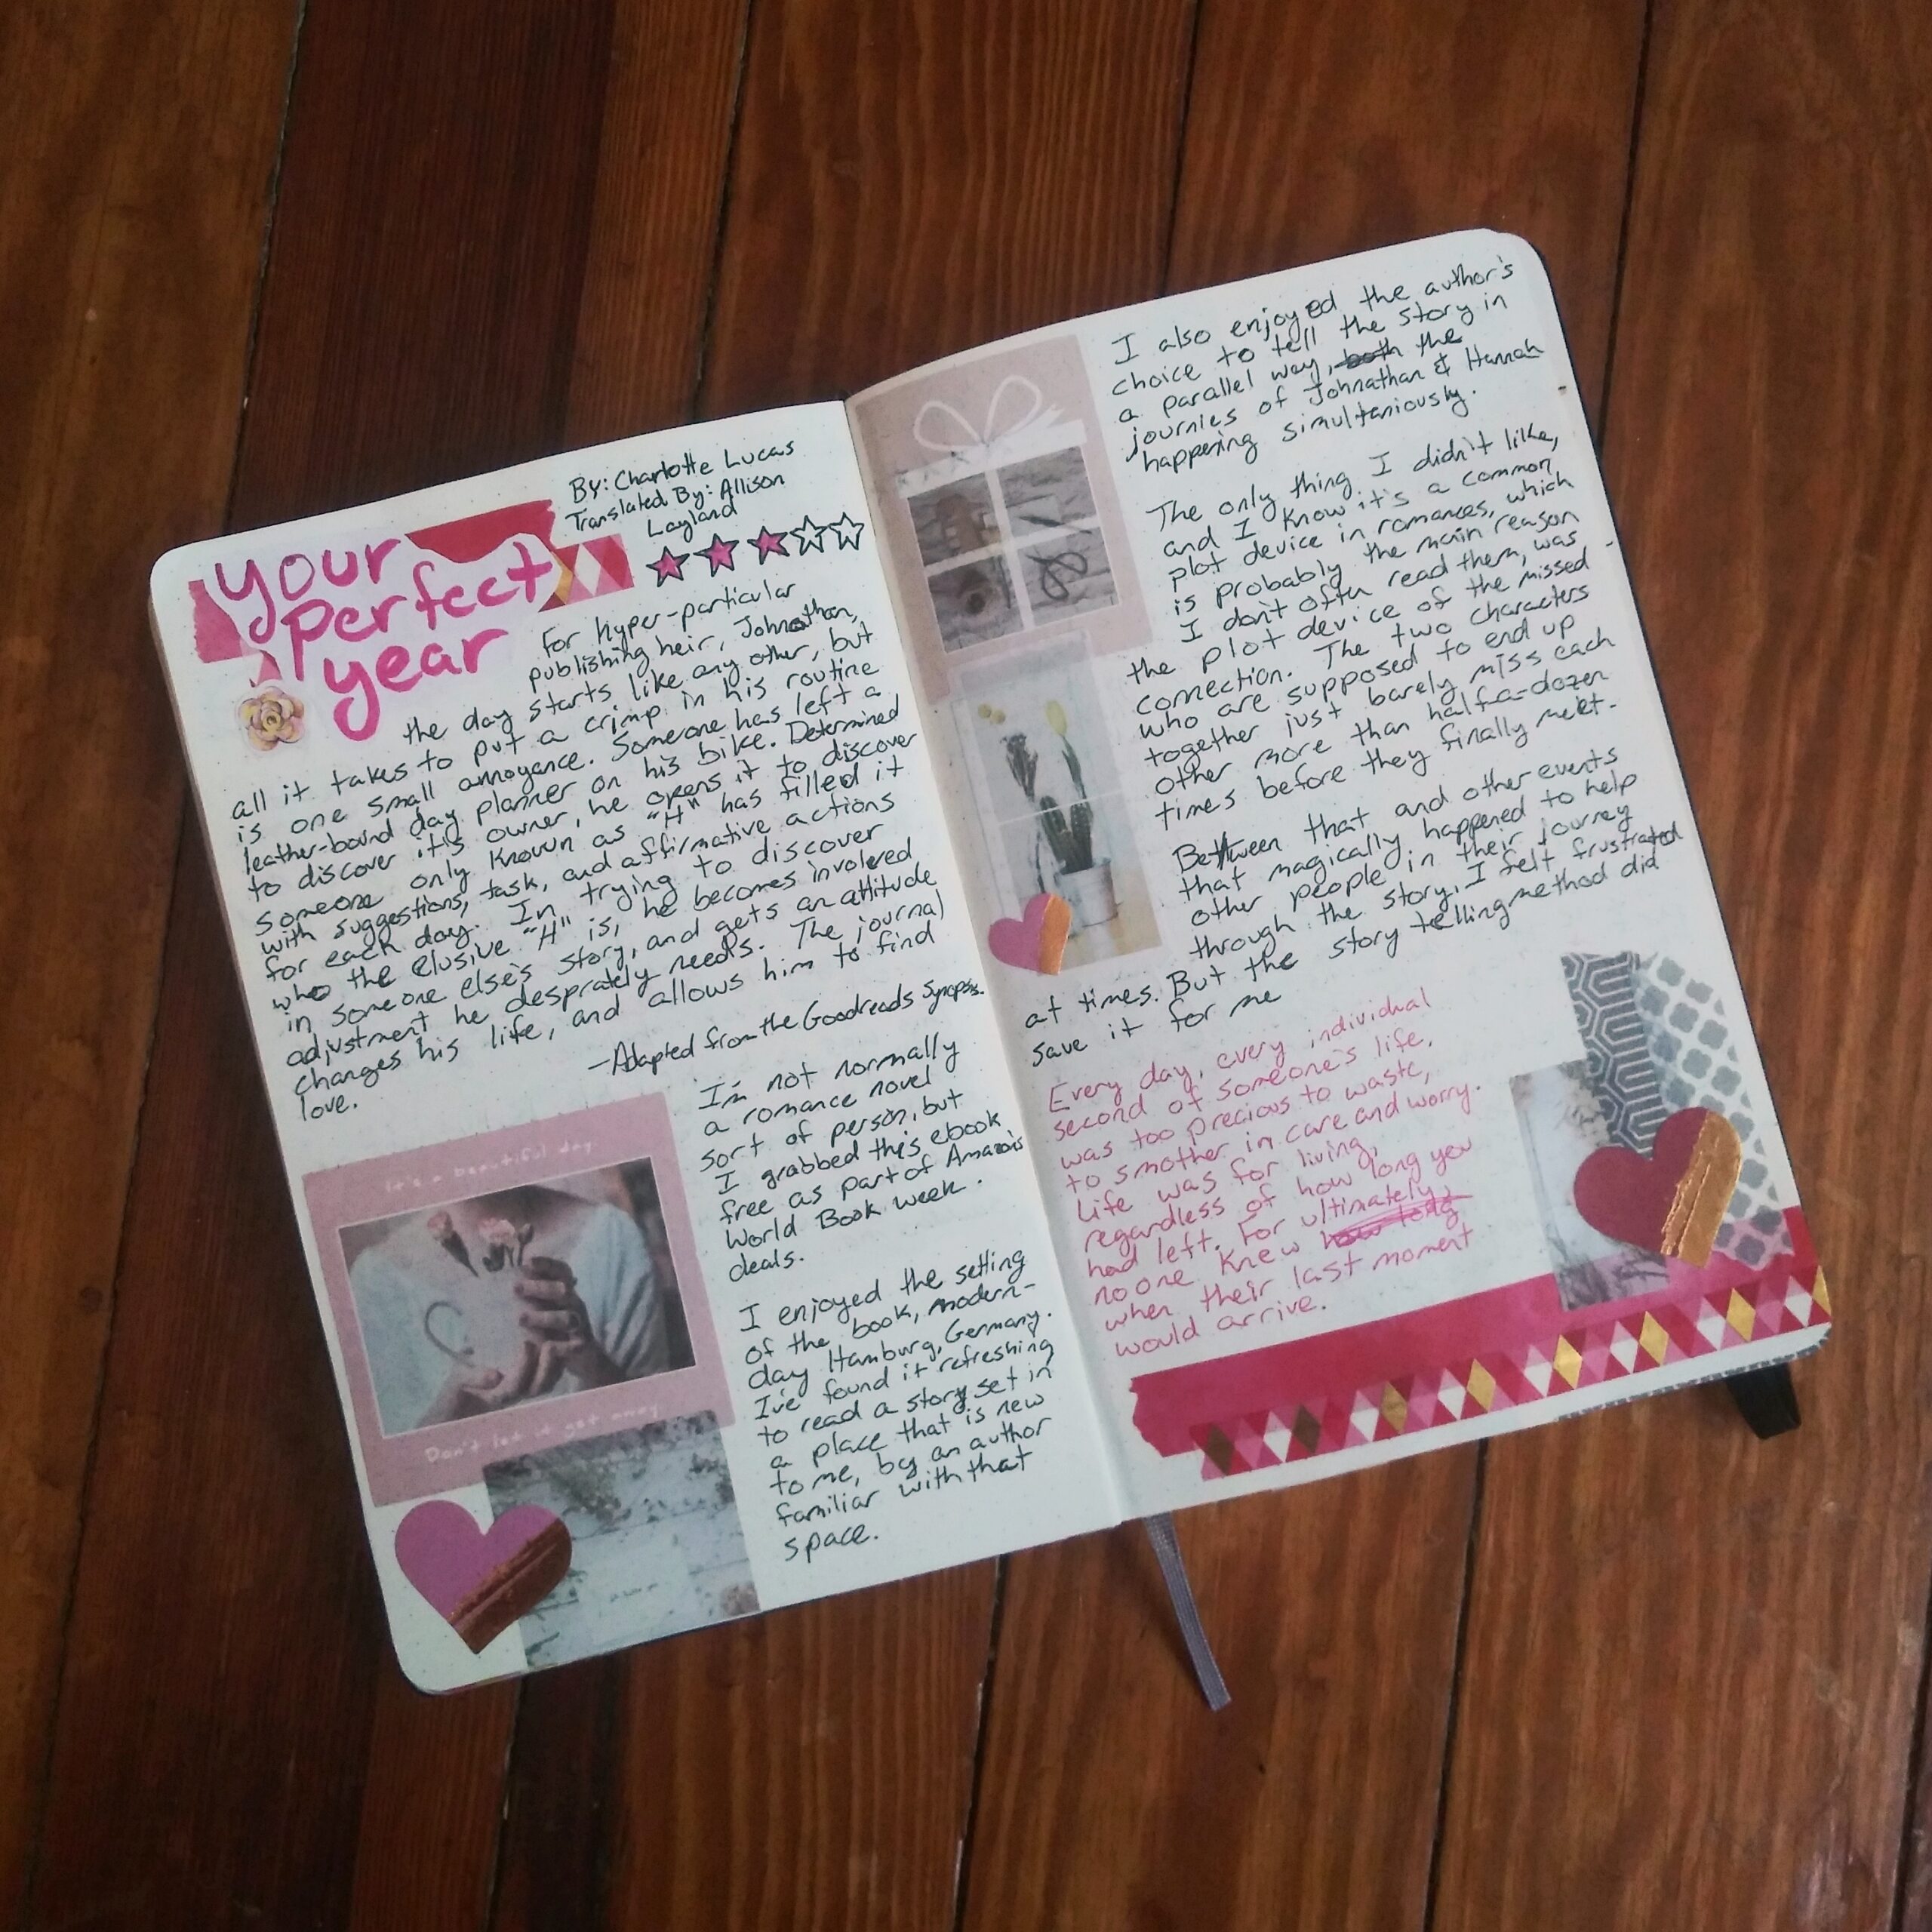 your
perfect
year
By: Charlotte Lucas
Translated By: Allison
Layland
For hyper-particular
publishing heir, Johnathan,
the day starts like any other, but
all it takes to put a crimp in his routine
is one small annoyance. Someone has left a
leather-bound day planner on his bike. Determined
to discover it's owner, he opens it to discover
someone only known as "H" has filled it
with suggestions, task, and affirmative actions
for each day. In trying to discover
who the elusive "H" is, he becomes involved
in someone else's story, and gets an attitude
adjustment he desprately needs. The journal
changes his life, and allows him to find
love.
-Adapted from the Goodreads Synopsis.
It's a beautiful day
Don't let it get away
I'm not normally
a romance novel
sort of person, but
I grabbed this ebook
free as part of Amazon's
World Book week
deals.
I enjoyed the setting
of the book, modern-
day Hamburg, Germany.
I've found it refreshing
to read a story set in
a place that is new
to me, by an author
familiar with that
space.
I also enjoyed the author's
choice to tell the story in
a parallel way, both the
journies of Johnathan & Hannah
happening simultaniously.
The only thing I didn't like,
and I know it's a common
plot device in romances, which
is probably the main reason
I don't often read them, was
the plot device of the missed
connection. The two characters
who are supposed to end up
together just barely miss each
other more than half-a-dozen
times before they finally meet.
Between that and other events
that magically happened to help
other people in their journey
through the story, I felt frustrated
at times. But the story telling method did
save it for me
Every day, every individual
second of someone's life,
was too precious to waste,
to smother in care and worry.
Life was for living,
regardless of how long you
had left. For ultimately,
no one knew how long
when their last moment
would arrive.